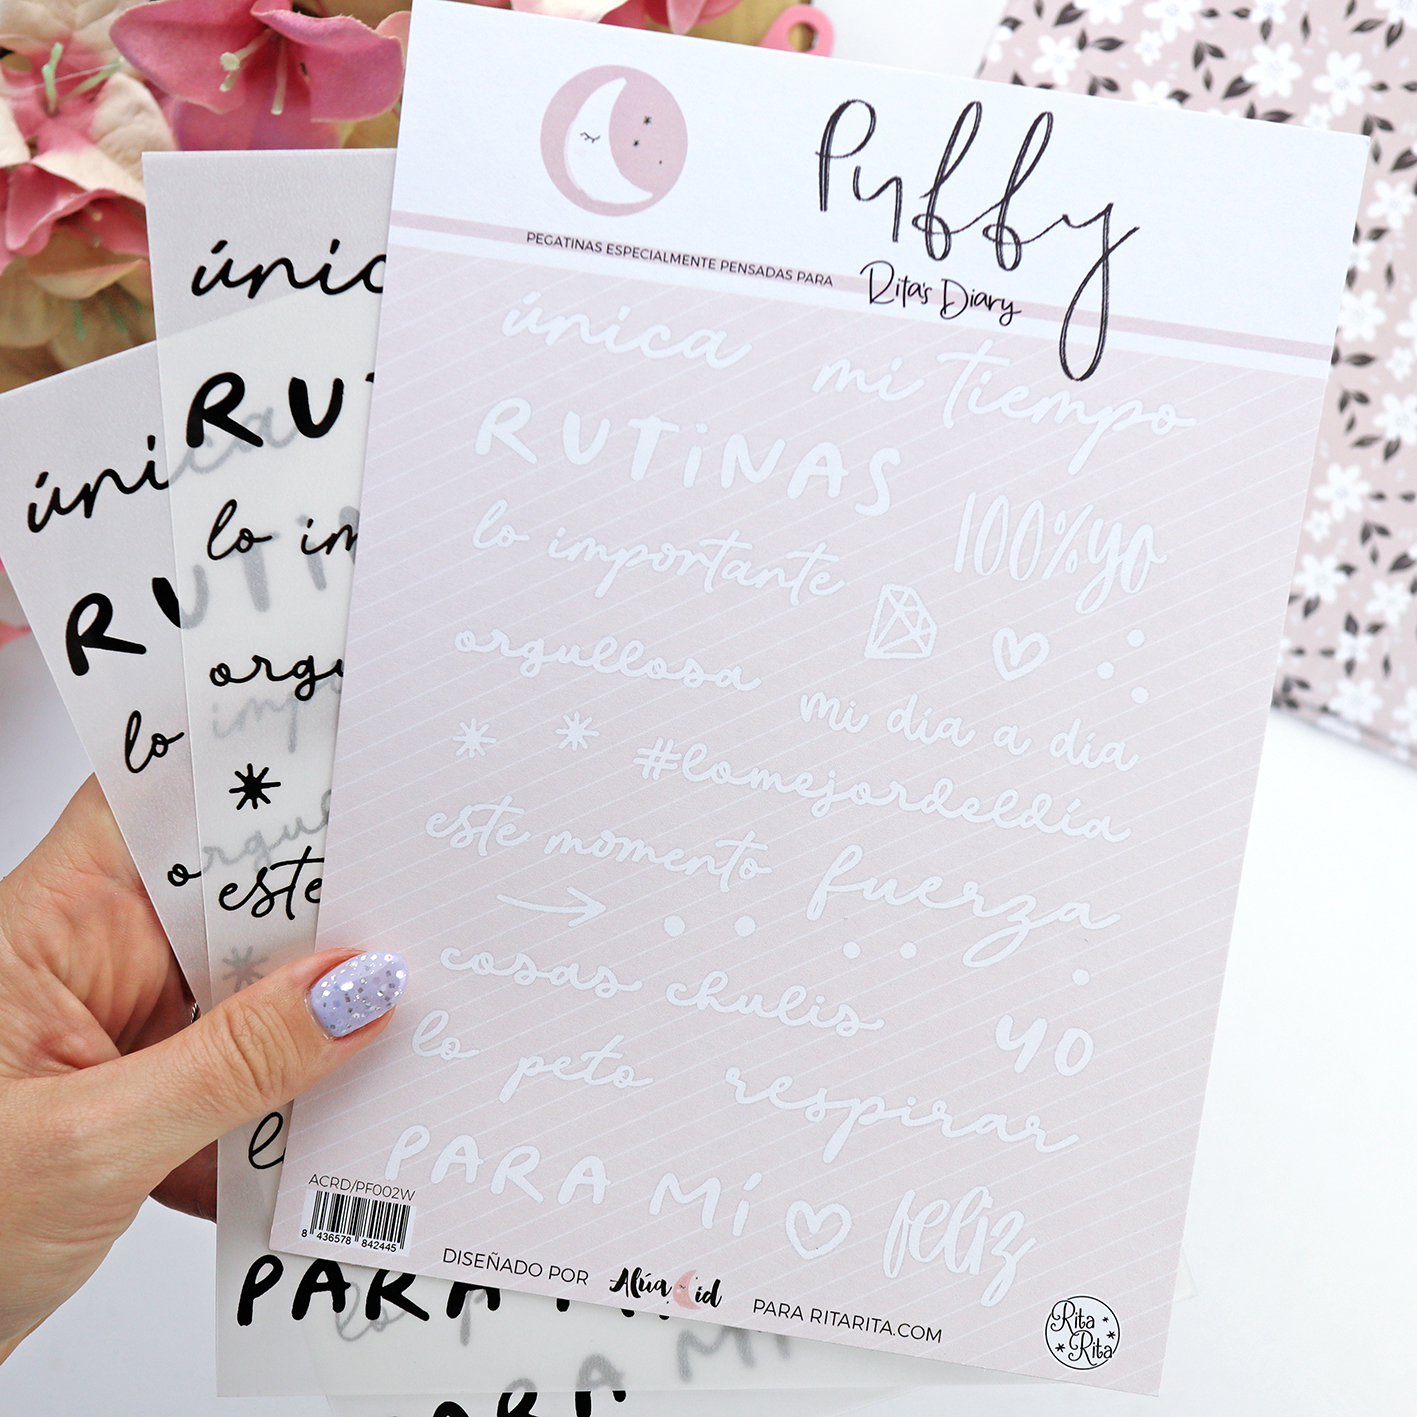 Puffy
PEGATINAS ESPECIALMENTE PENSADAS PARA
Rita's Diary
única mi tiempo
RUTiNAS
100%yo
lo importante
orgullosa
mi día a día
#lomejordeldía
este momento
fuerza
cosas chulis
yo
lo peto
respirar
PARA MÍ
feliz
ACRD/PF002W
8 436578 842445
DISEÑADO POR Alúa Cid PARA RITARITA.COM
Rita
Rita
únic
RU
lo im
orgu
este
PARA
úni
RU
lo
o